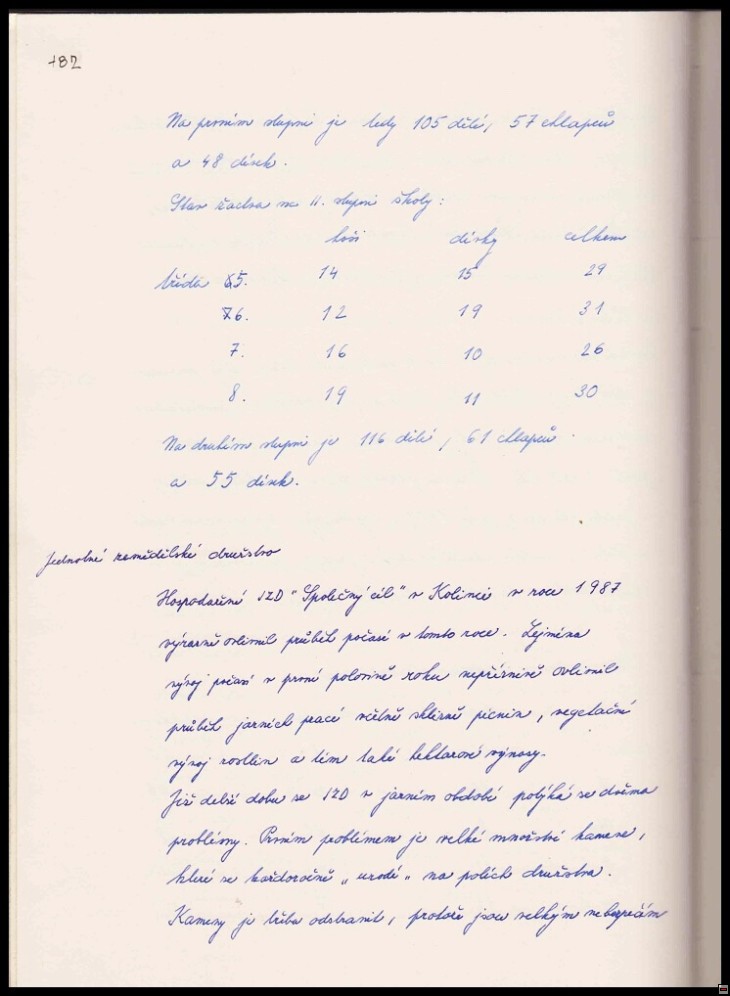 182
Na prvním stupni je tedy 105 dětí, 57 chlapců
a 48 dívek.
Stav žactva na II. stupni školy:
hoši dívky celkem
třída 5. 14 15 29
6. 12 19 31
7. 16 10 26
8. 19 11 30
Na druhém stupni je 116 dětí, 61 chlapců
a 55 dívek.
Jednotné zemědělské družstvo
Hospodaření JZD "Společný cíl" v Kolinci v roce 1987
výrazně ovlivnil průběh počasí v tomto roce. Zejména
vývoj počasí v první polovině roku nepříznivě ovlivnil
průběh jarních prací včetně sklizně pícnin, vegetační
vývoj rostlin a tím také hektarové výnosy.
Již delší dobu se JZD v jarním období potýká se dvěma
problémy. Prvním problémem je velké množství kamene,
které se každoročně „urodí" na polích družstva.
Kameny je třeba odstranit, protože jsou velkým nebezpečím